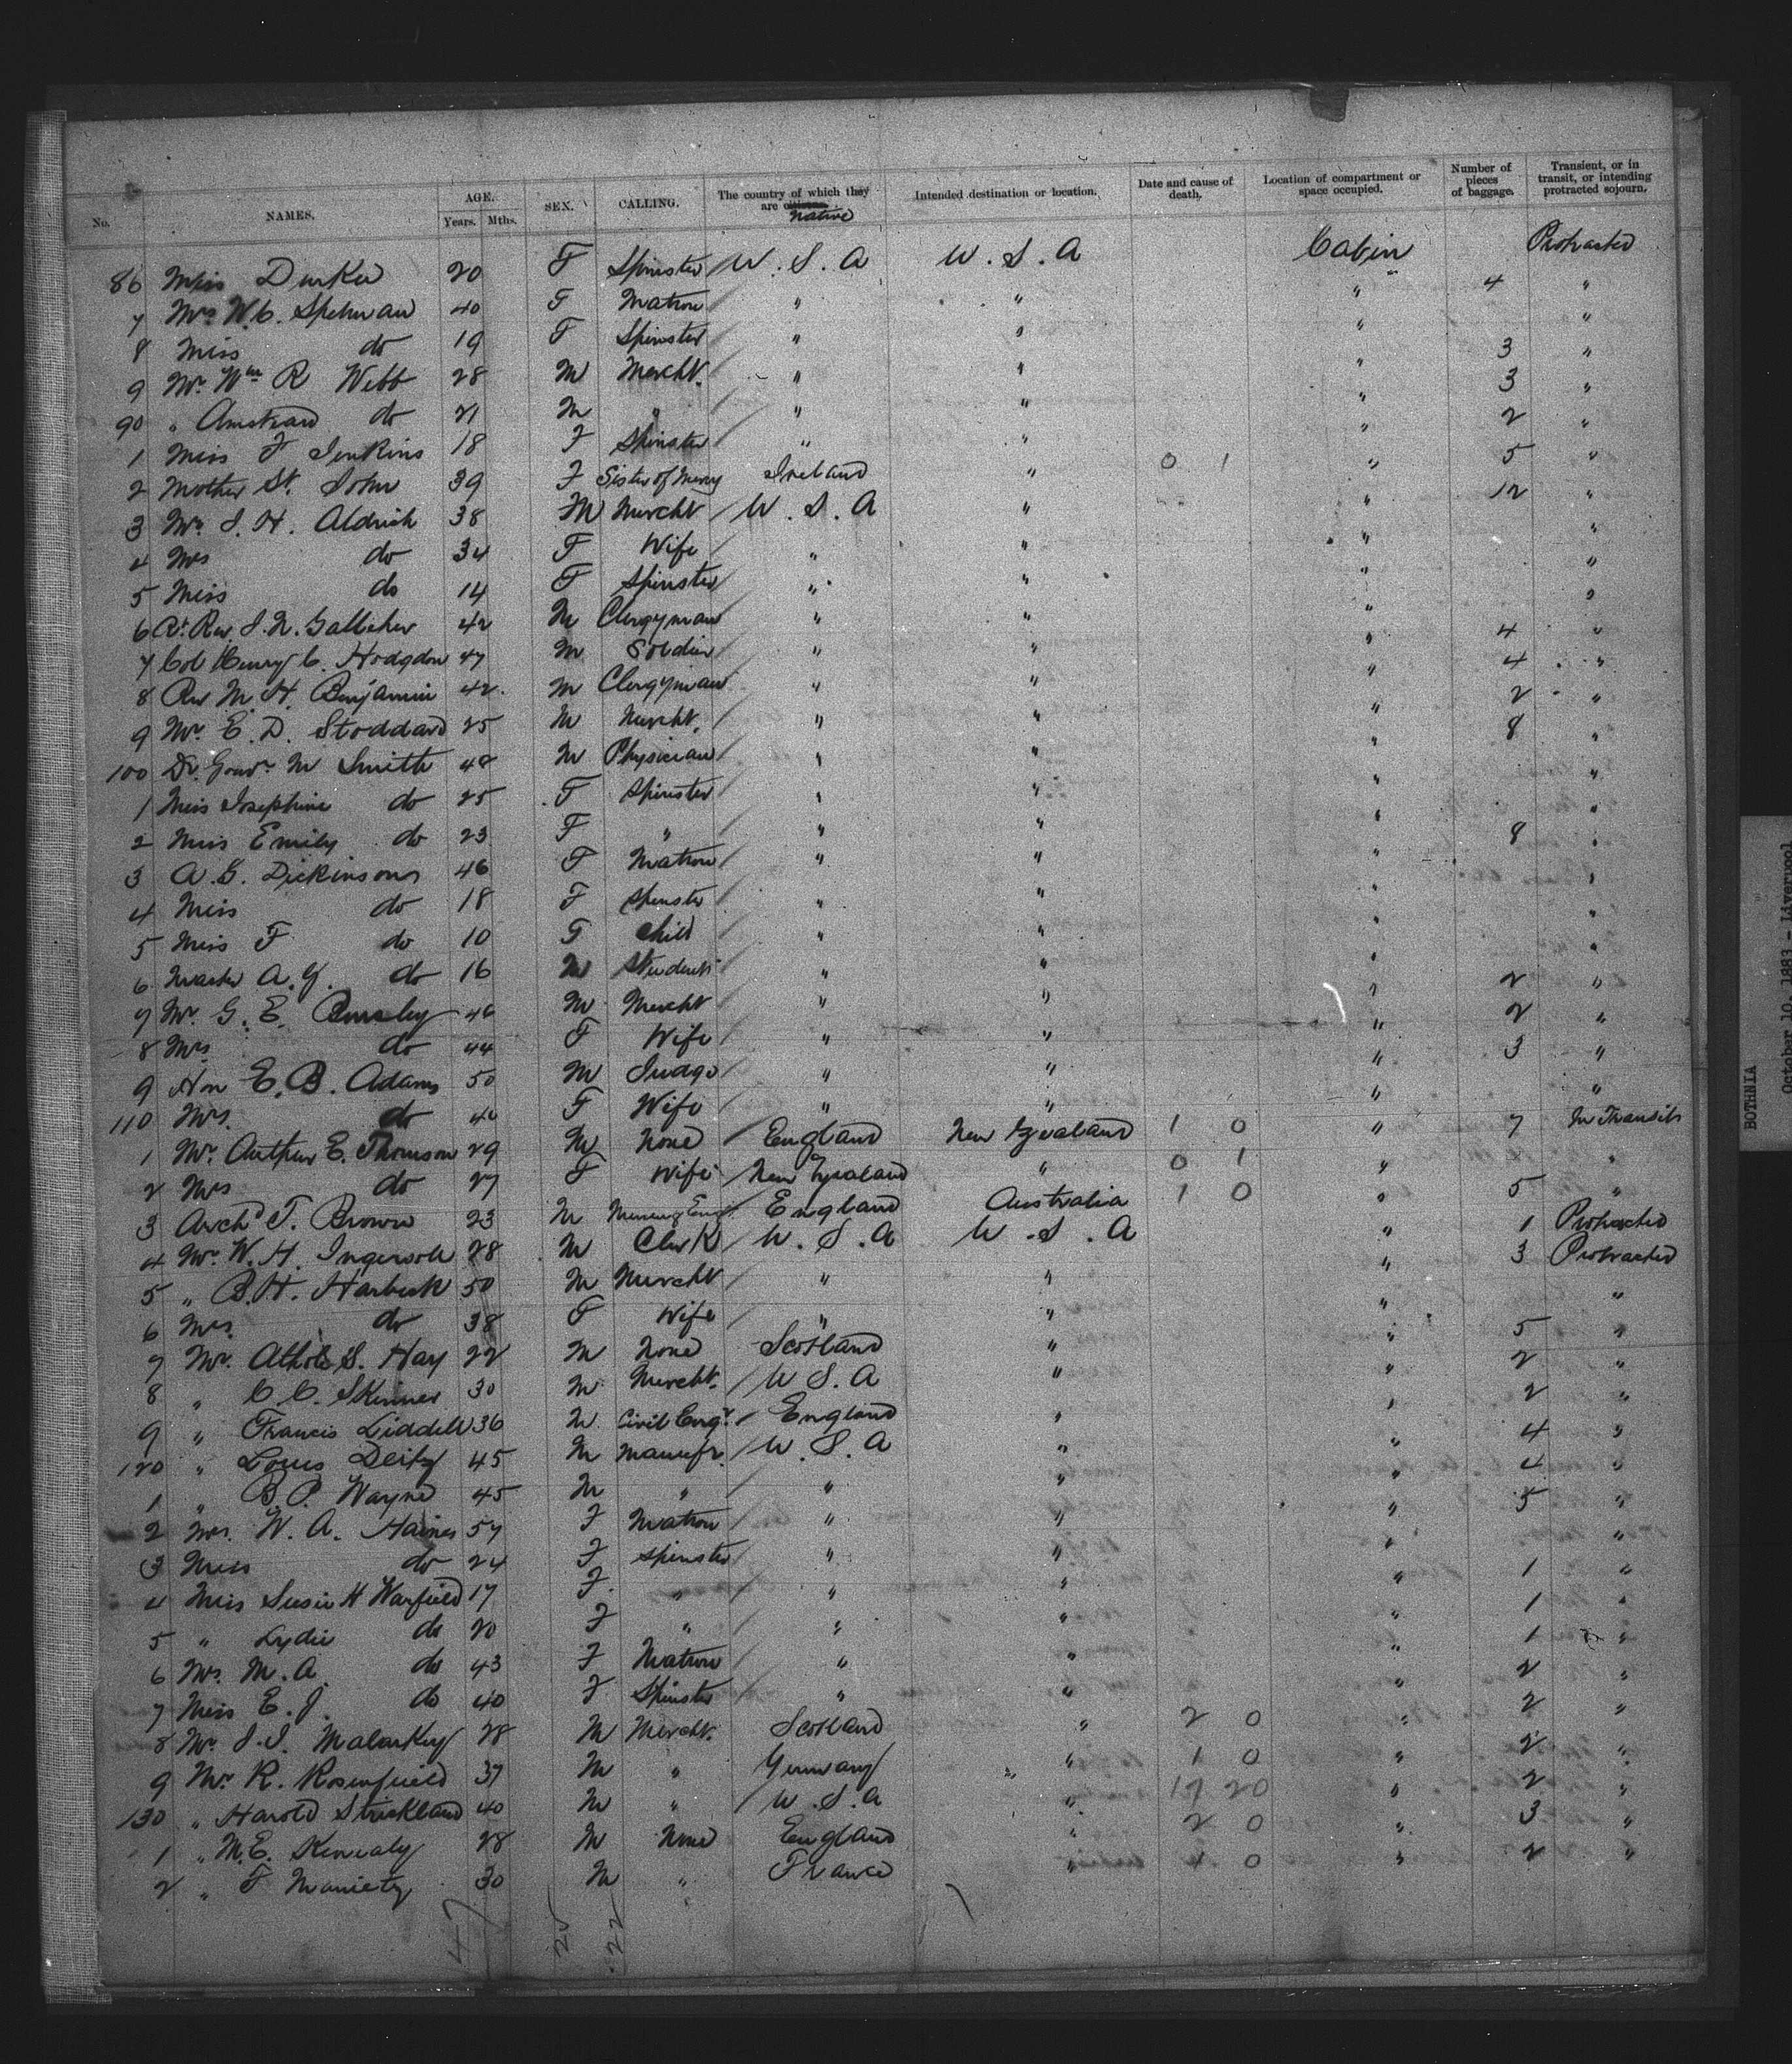 No. NAMES. AGE. Years. Mths. SEX. CALLING. The country of which they are citizens. native Intended destination or location. Date and cause of death. Location of compartment or space occupied. Number of pieces of baggage. Transient, or in transit, or intending protracted sojourn.
86 Miss 20 F Spinster U.S.A U.S.A Cabin Protracted
7 Mrs W.C. Spelman 40 F Matron " " " 4 "
8 Miss do 19 F Spinster " " " "
9 Mr. Wm R Webb 28 M Mercht. " " " 3 "
90 " do 21 M " " " " 3 "
1 Miss F Jenkins 18 F Spinster " " " 2 "
2 Mother St. John 39 F Sister of Mercy Ireland " 0 1 " 5 "
3 Mr. J.H. Aldrich 38 M Mercht U.S.A " " 12 "
4 Mrs do 34 F Wife " " " "
5 Miss do 14 F Spinster " " " "
6 Rt. Rev. J.N. Gallaher 42 M Clergyman " " " "
7 Col Henry C. Hodgdon 47 M Soldier " " " 4 "
8 Rev M.H. Benjamin 42 M Clergyman " " " 4 "
9 Mr. E.D. Stoddard 25 M Mercht. " " " 2 "
100 Dr. M Smith 48 M Physician " " " 8 "
1 Miss Josephine do 25 F Spinster " " " "
2 Miss Emily do 23 F " " " " "
3 A.G. Dickinson 46 F Matron " " " 8 "
4 Miss do 18 F Spinster " " " "
5 Miss F do 10 F Child " " " "
6 Master A.G. do 16 M Student " " " "
7 Mr. G.E. 46 M Mercht " " " 2 "
8 Mrs do 44 F Wife " " " 2 "
9 Hon E.B. Adams 50 M Judge " " " 3 "
110 Mrs. do 40 F Wife " " " "
1 Mr. Arthur E. Thomson 29 M None England New Zealand 1 0 " 7 In Transit
2 Mrs do 27 F Wife New Zealand " 0 1 " "
3 Archd T. Brown 23 M Mining Engr. England Australia 1 0 " 5 "
4 Mr. W.H. Ingersoll 28 M Clerk U.S.A U.S.A " 1 Protracted
5 " B.H. Harbeck 50 M Mercht " " " 3 Protracted
6 Mrs. do 38 F Wife " " " "
7 Mr. Athol S. Hay 22 M None Scotland " " 5 "
8 " C.C. Skinner 30 M Mercht. U.S.A " " 2 "
9 " Francis Liddell 36 M Civil Engr. England " " 2 "
120 " Louis Deitz 45 M Manufr. U.S.A " " 4 "
1 " B.P. Wayne 45 M " " " " 4 "
2 Mrs. W.A. Haines 57 F Matron " " " 5 "
3 Miss do 24 F Spinster " " " "
4 Miss Susie H Warfield 17 F " " " " 1 "
5 " Lydie do 20 F " " " " 1 "
6 Mrs. M.A. do 43 F Matron " " " 1 "
7 Miss E.J. do 40 F Spinster " " " 2 "
8 Mr. J.J. Malarkey 28 M Mercht. Scotland " 2 0 " 2 "
9 Mr R. Rosenfield 37 M " Germany " 1 0 " 2 "
130 " Harold Strickland 40 M " U.S.A " 17 20 " 2 "
1 " M.E. Kenealy 28 M None England " 2 0 " 3 "
2 " F 30 M " France " 4 0 " 2 "
47 25 22
BOTHNIA
October 10, 1883 - Liverpool